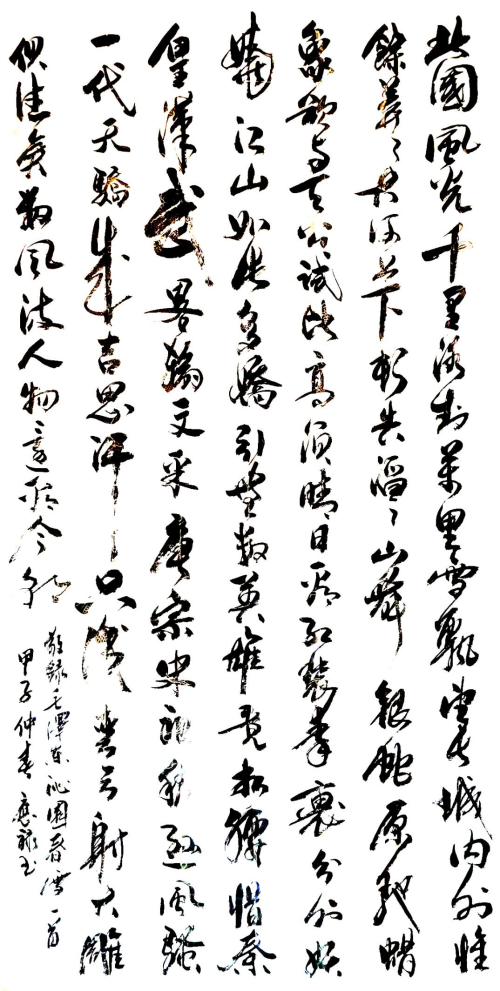 北國風光千里冰封萬里雪飄望長城内外惟
餘莽〻大河上下頓失滔〻山舞銀蛇原馳蠟
象欲与天公試比高須晴日看紅裝素裹分外妖
嬈江山如此多嬌引無數英雄競折腰惜秦
皇漢武畧輸文采唐宗宋祖稍遜風騷
一代天驕成吉思汗只識彎弓射大雕
俱往矣數風流人物還看今朝
敬錄毛澤東沁園春雪一首
甲子仲春